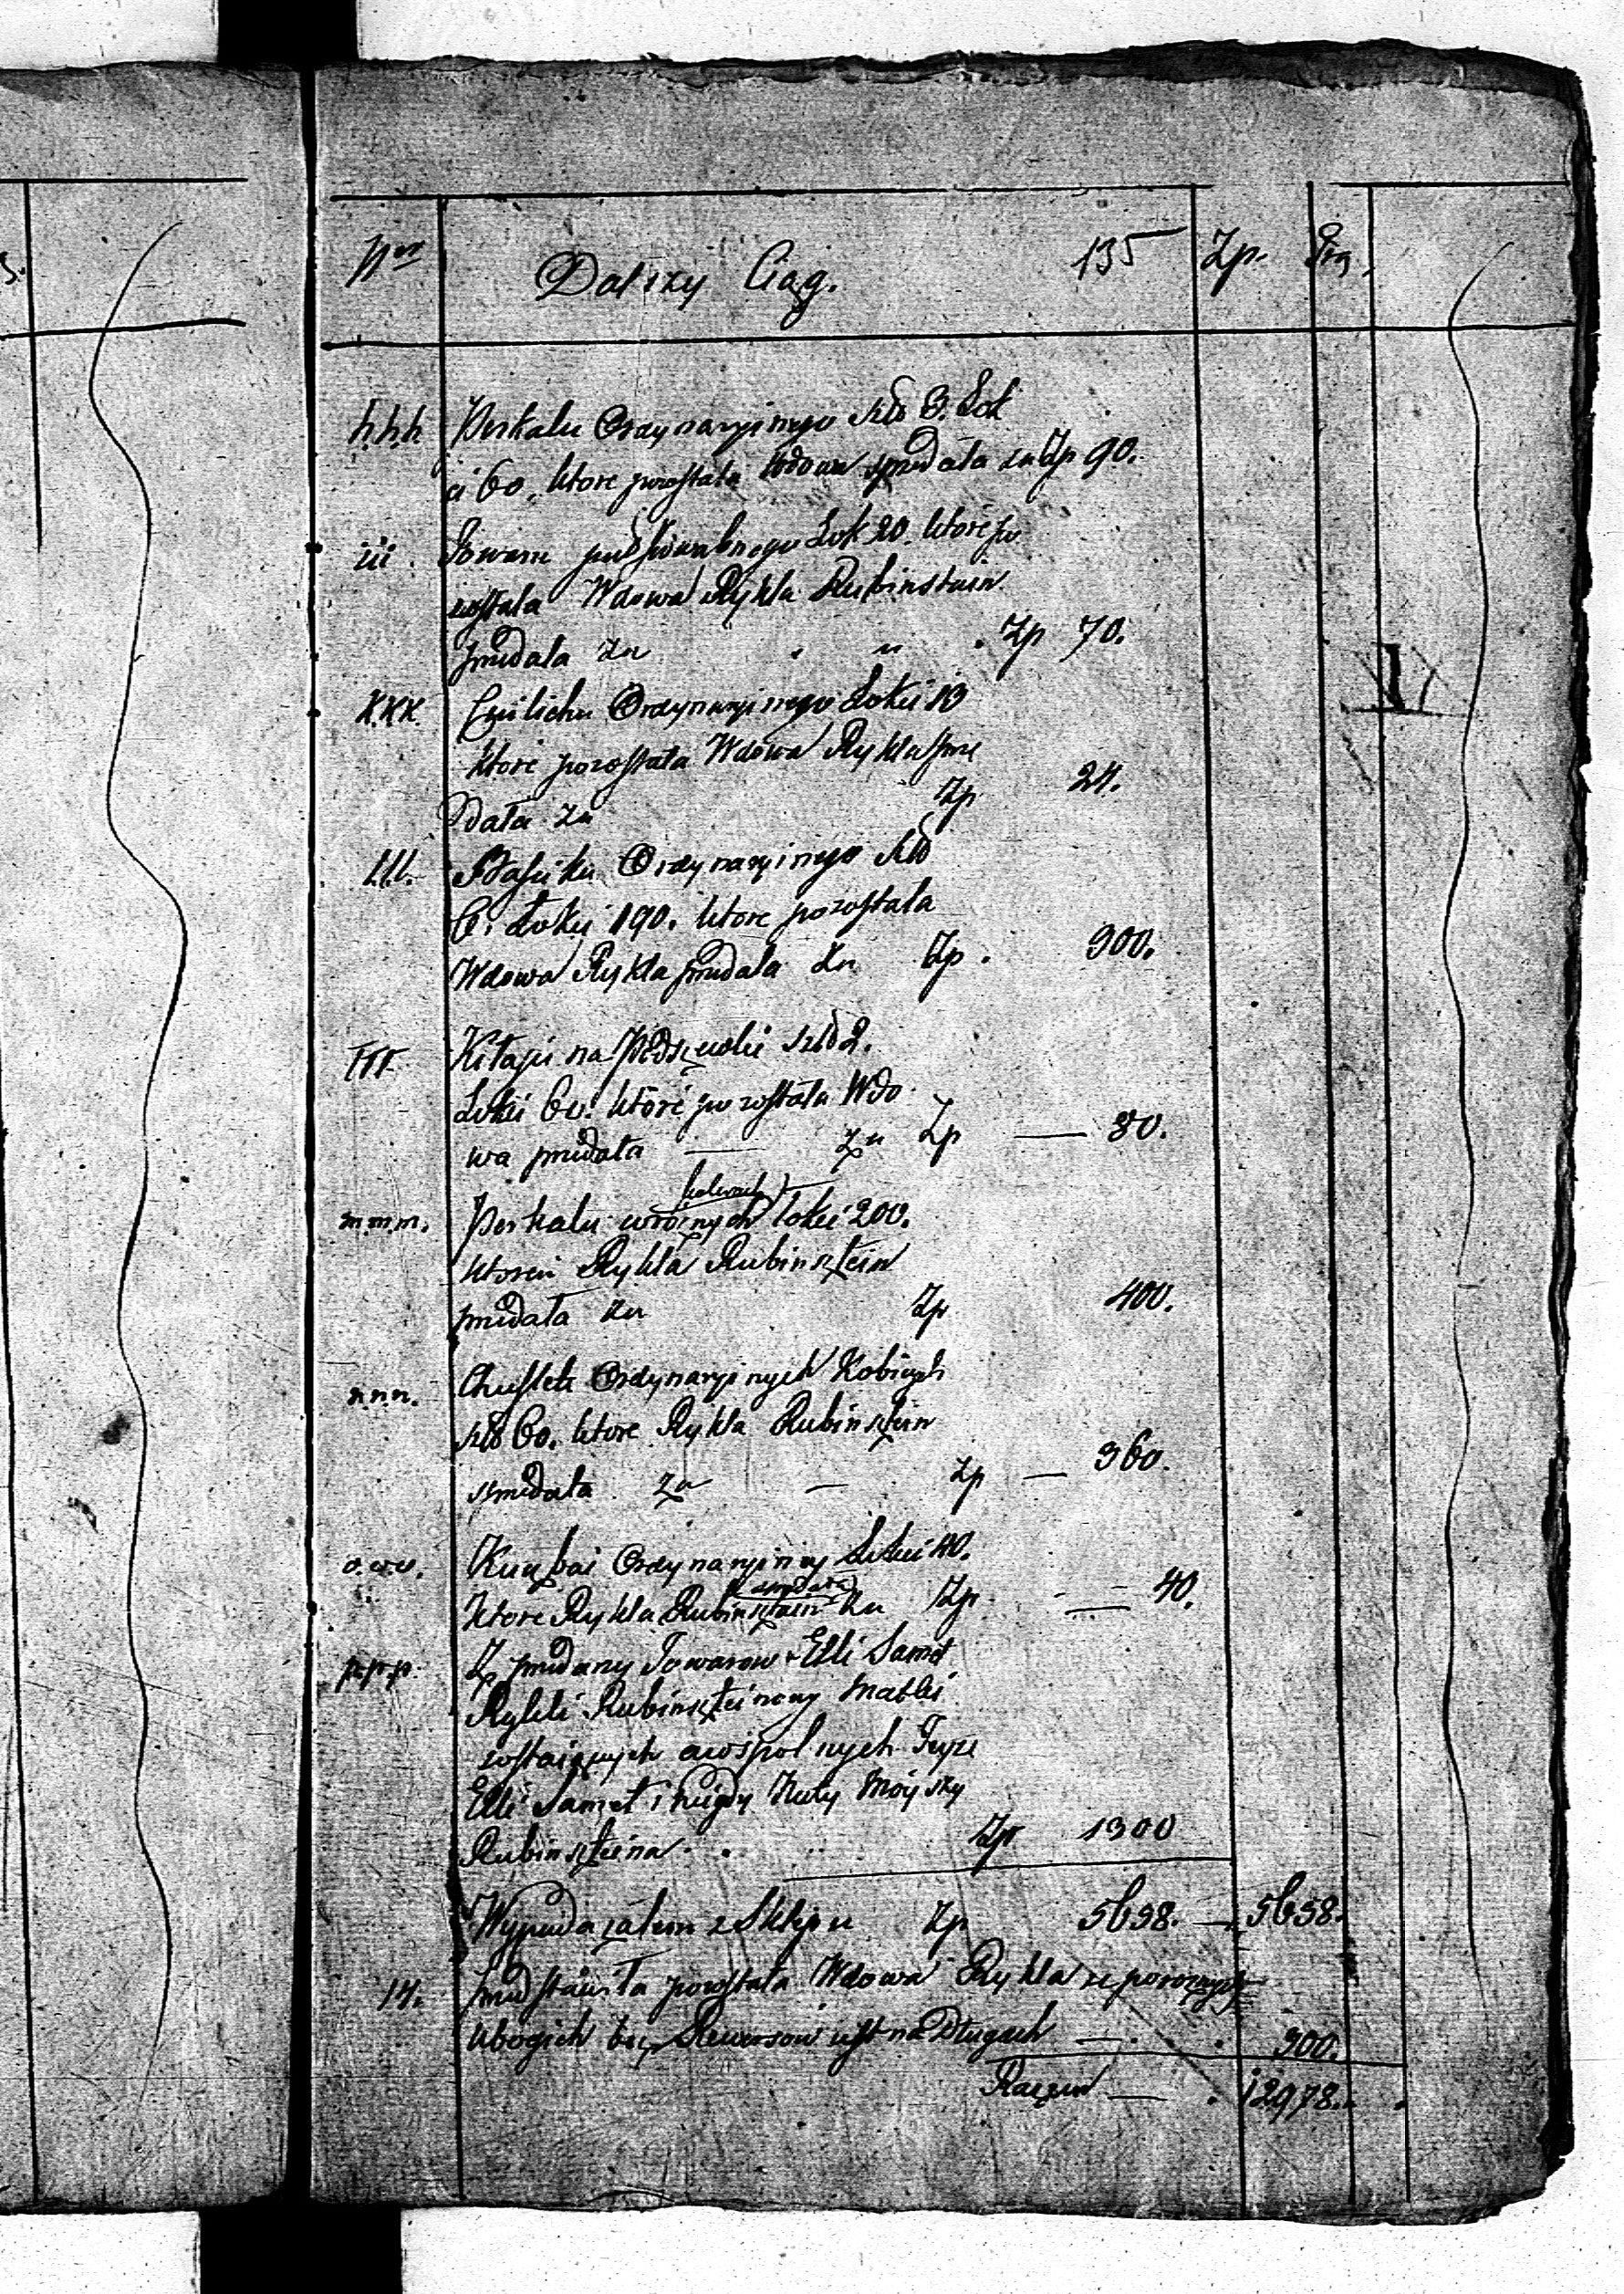 Nro Dalszy Ciąg. 135 Zp. Gr.
h.h.h Perkalu Ordynaryinego sztk 3. Łok
ci 60. ktore pozostała Wdowa sprzedała za Zp 90.
iii. Towaru Łok 20 ktore po
zostala Wdowa Rykla Rubinstain
przedala za " Zp 70.
K.K.K. Cwilichu Ordynaryinego Łokci 13
ktore pozostała Wdowa Rykla prze
dała za Zp 24.
l.l.l. Ordynaryinego sztk
6. Łokci 190. ktore pozostala
Wdowa Rykla przedala za Zp. 300.
Kitayu na sztk 2.
Łokci 60. ktore pozostała Wdo
wa przedała — za Zp — 80.
m.m.m. Perkalu w roznych kolorach Łokci 200.
ktoren Rykla Rubinsztein
przedała za Zp 400.
n.n.n. Chustek Ordynaryinych Kobicych
sztk 60. ktore Rykla Rubinsztein
sprzedała za — Zp — 360.
o.o.o. Ordynaryiney Łokci 40.
ktore Rykla Rubinsztain sprzedała za Zp. — 40.
p.p.p. Z przedany Towarow Elli Samet
Rykli Rubinszteinowy Matki
zostaiących a wspolnych
Elli Samet i niegdy Moyszy
Rubinszteina. Zp 1300
Wypada zatem z Sklepu Zp 5638. — 5638.
14. Przedstawiła pozostała Wdowa Rykla ze po
Ubogich bez Rewersow iest na Długach — . 300.
Razem — . 12978.